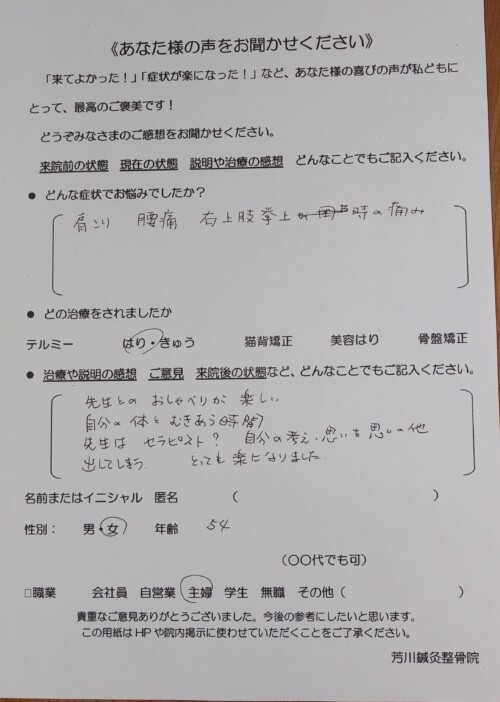 《あなた様の声をお聞かせください》
「来てよかった！」「症状が楽になった！」など、あなた様の喜びの声が私どもに
とって、最高のご褒美です！
どうぞみなさまのご感想をお聞かせください。
来院前の状態　現在の状態　説明や治療の感想　どんなことでもご記入ください。
● どんな症状でお悩みでしたか？
肩こり　腰痛　右上肢挙上時の痛み
● どの治療をされましたか
テルミー　はり・きゅう　猫背矯正　美容はり　骨盤矯正
● 治療や説明の感想　ご意見　来院後の状態など、どんなことでもご記入ください。
先生とのおしゃべりが楽しい
自分の体とむきあう時間
先生は セラピスト？ 自分の考え・思いを思いの他
出してしまう　とっても楽になりました
名前またはイニシャル　匿名　（　）
性別：　男・女　年齢　54
（〇〇代でも可）
□職業　会社員　自営業　主婦　学生　無職　その他（　）
貴重なご意見ありがとうございました。今後の参考にしたいと思います。
この用紙はHPや院内掲示に使わせていただくことをご了承ください。
芳川鍼灸整骨院